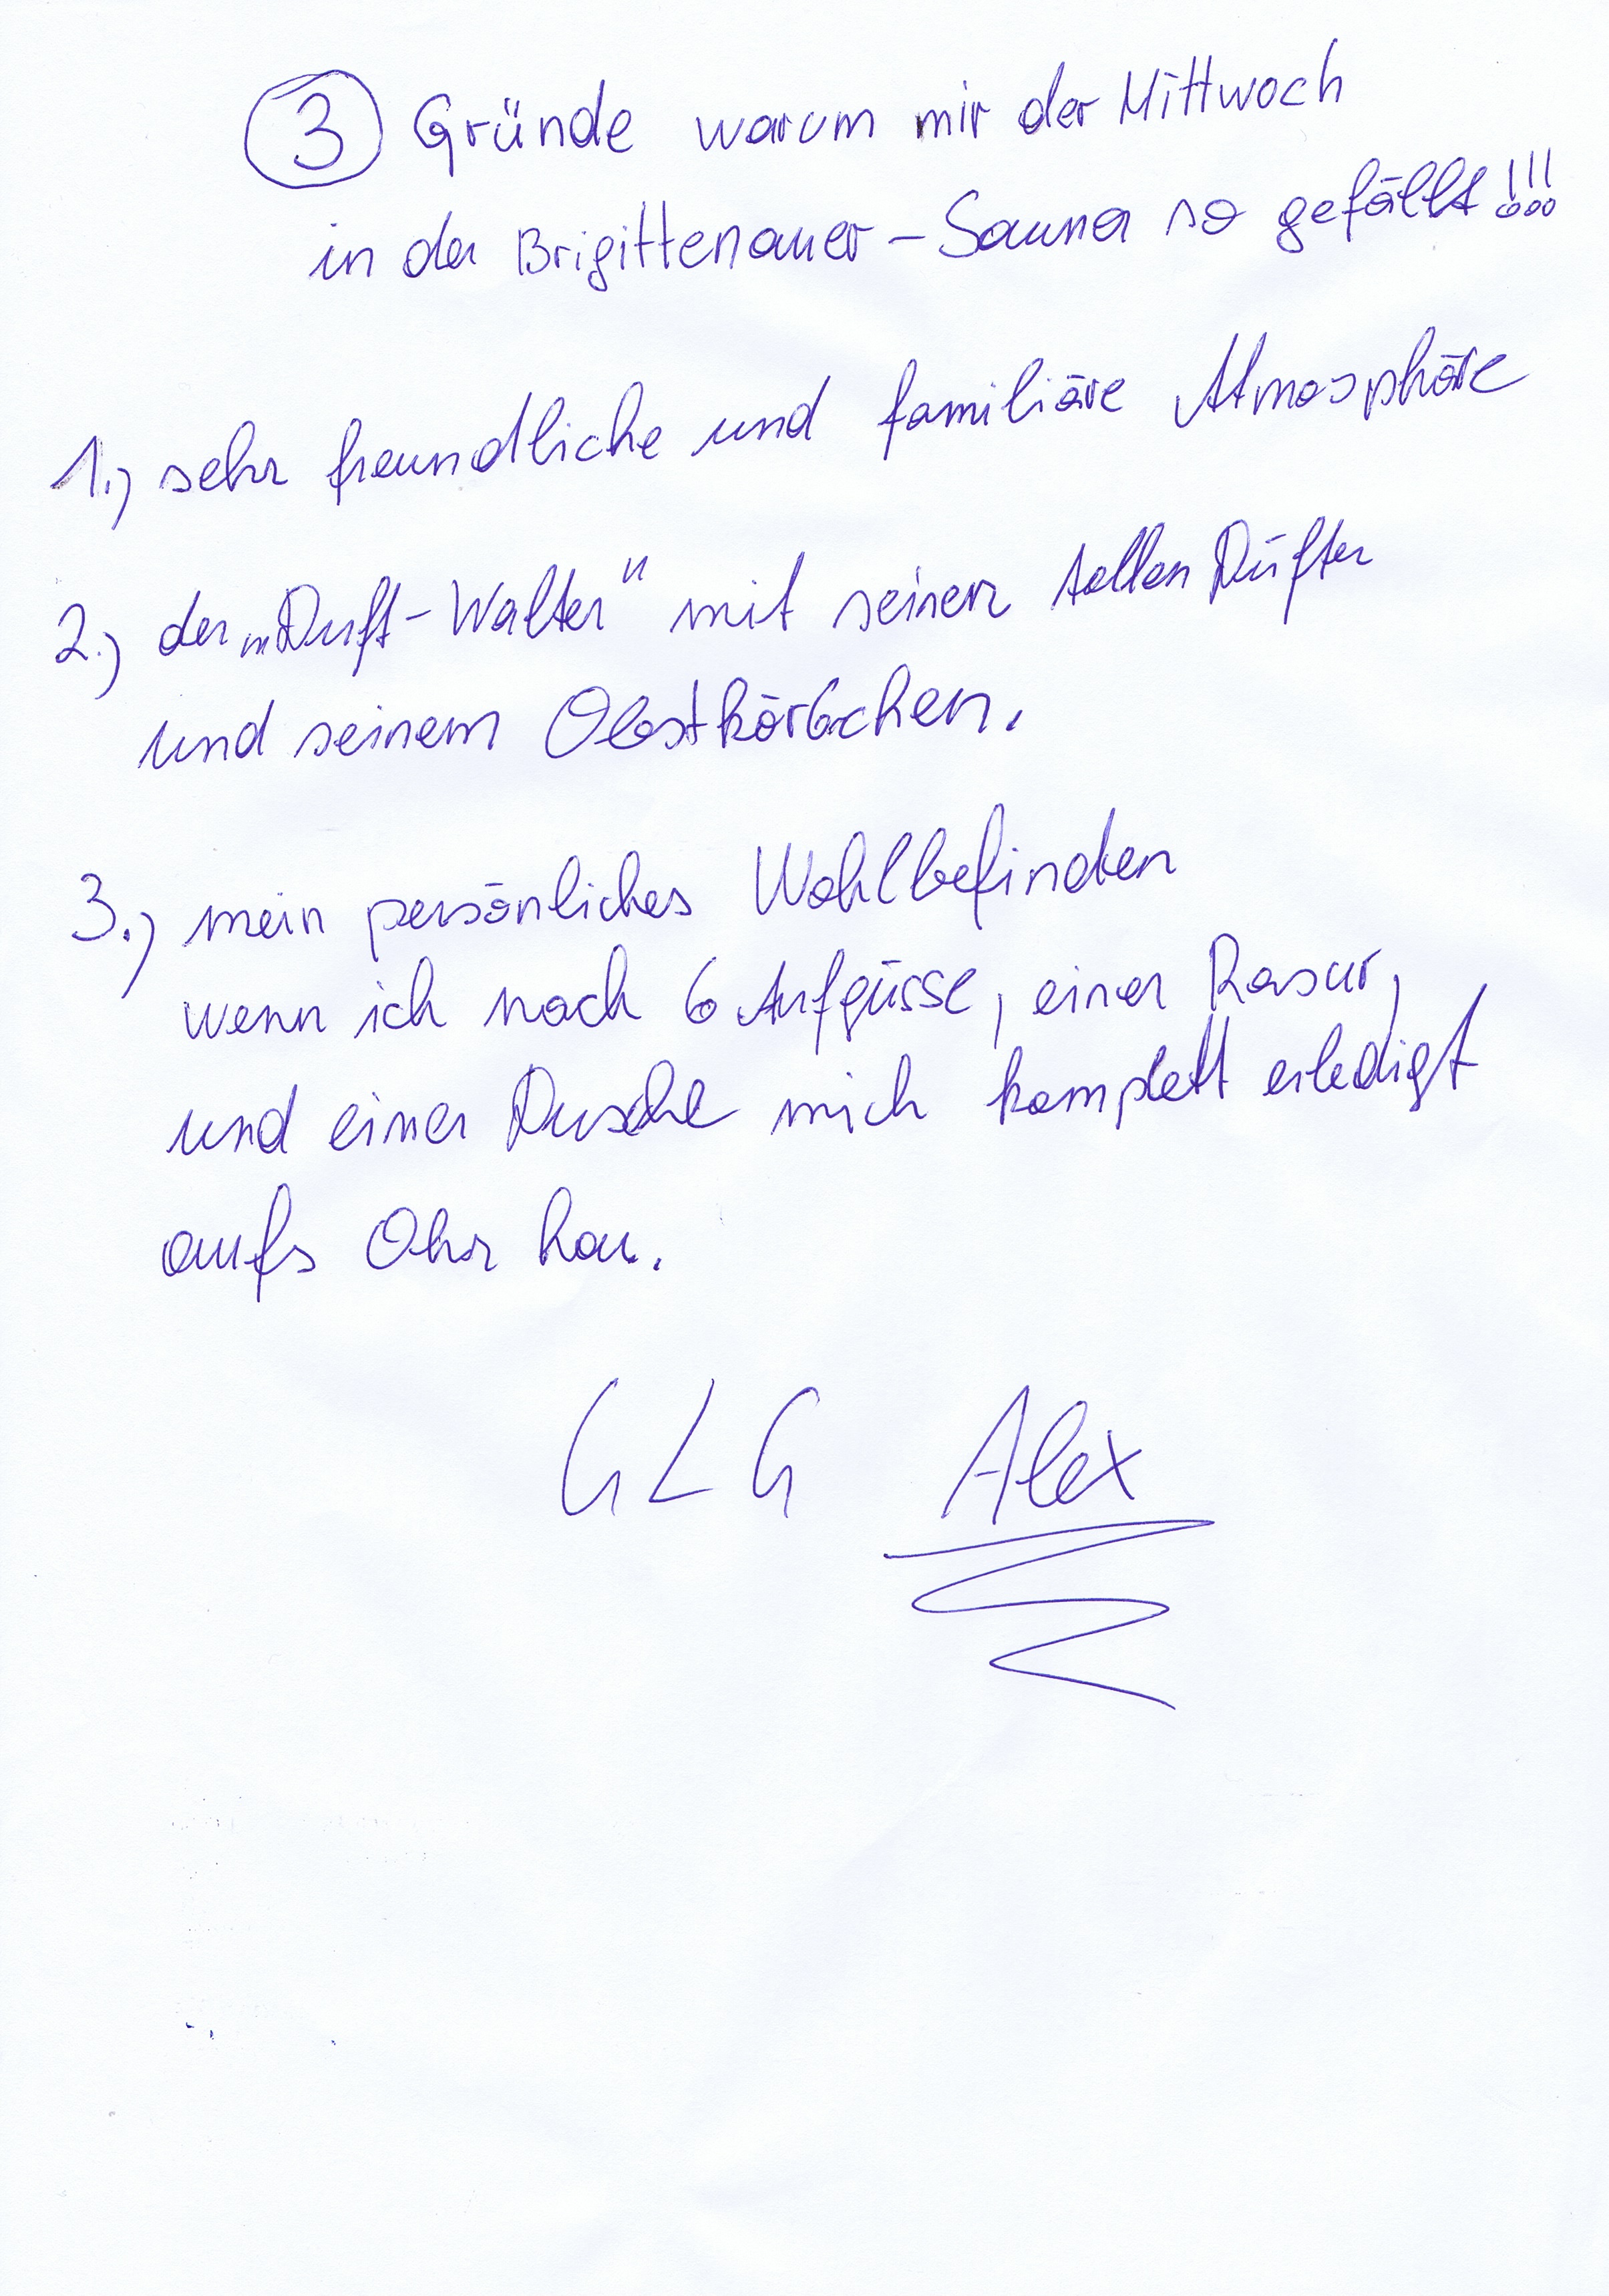 3 Gründe warum mir der Mittwoch
in der Brigittenauer-Sauna so gefällt!!!
1.) sehr freundliche und familiäre Atmosphäre
2.) der „Duft-Walter" mit seinen tollen Düften
und seinem Obstkörbchen.
3.) mein persönliches Wohlbefinden
wenn ich nach 6 Aufgüsse, einer Rasur,
und einer Dusche mich komplett erledigt
aufs Ohr hau.
GLG Alex